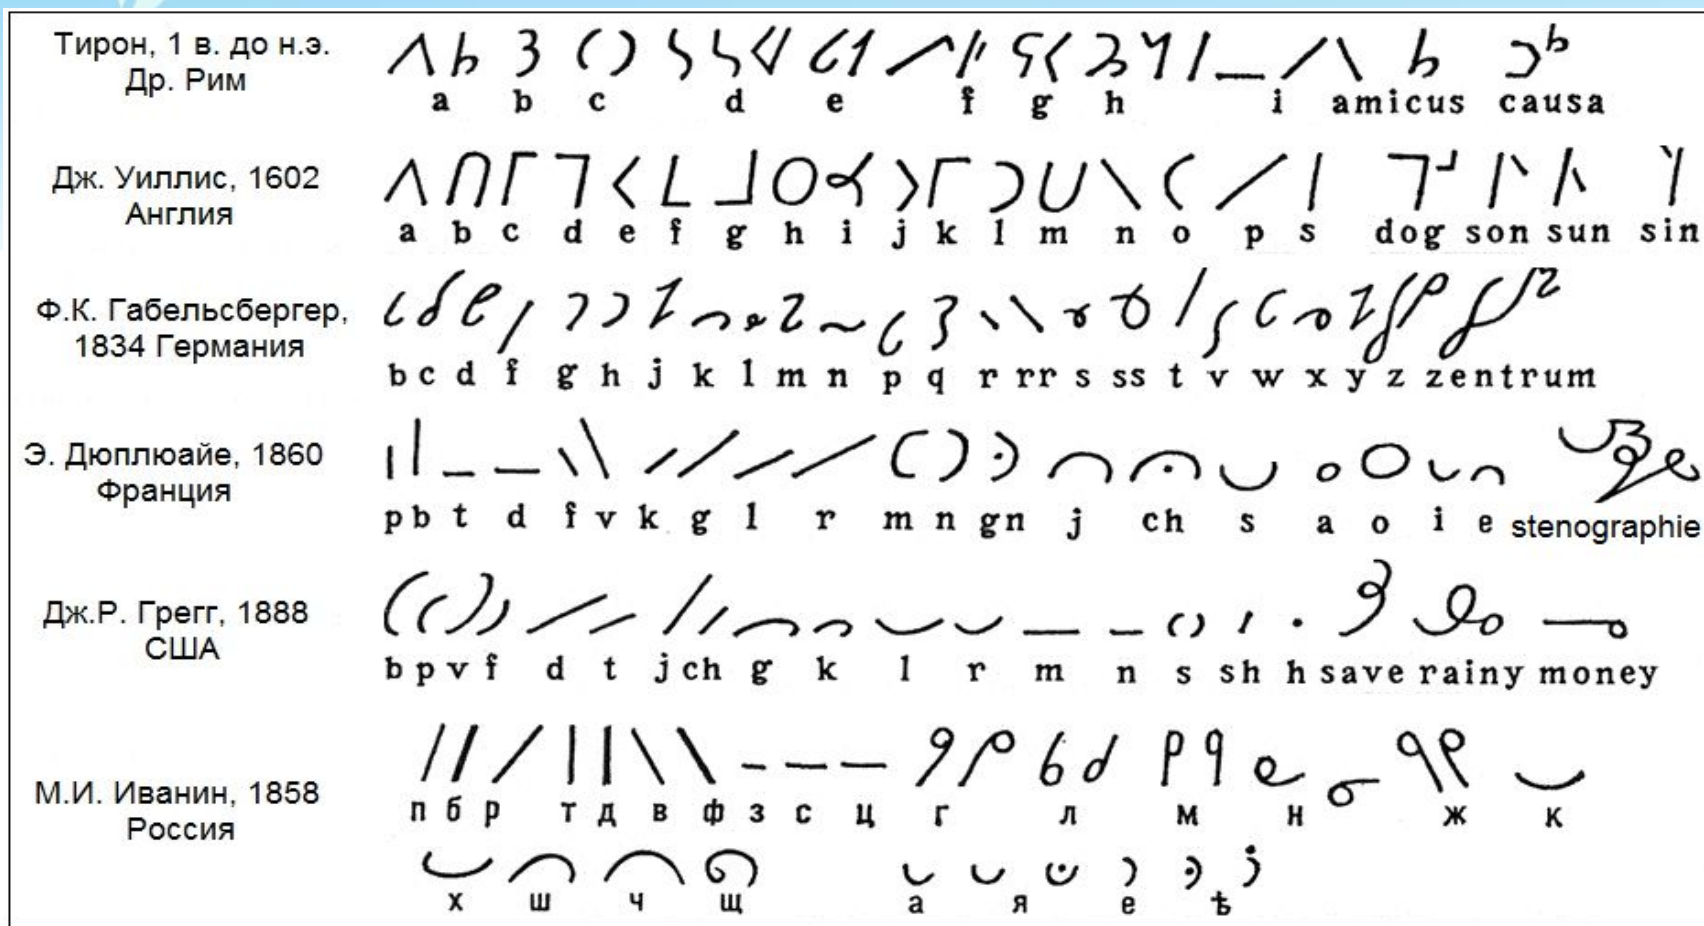 Тирон, 1 в. до н.э.
Др. Рим
a b c d e f g h i amicus causa
Дж. Уиллис, 1602
Англия
a b c d e f g h i j k l m n o p s dog son sun sin
Ф.К. Габельсбергер,
1834 Германия
b c d f g h j k l m n p q r rr s ss t v w x y z zentrum
Э. Дюплюайе, 1860
Франция
p b t d f v k g l r m n gn j ch s a o i e stenographie
Дж.Р. Грегг, 1888
США
b p v f d t j ch g k l r m n s sh h save rainy money
М.И. Иванин, 1858
Россия
п б р т д в ф з с ц г л м н ж к
х ш ч щ а я е ѣ